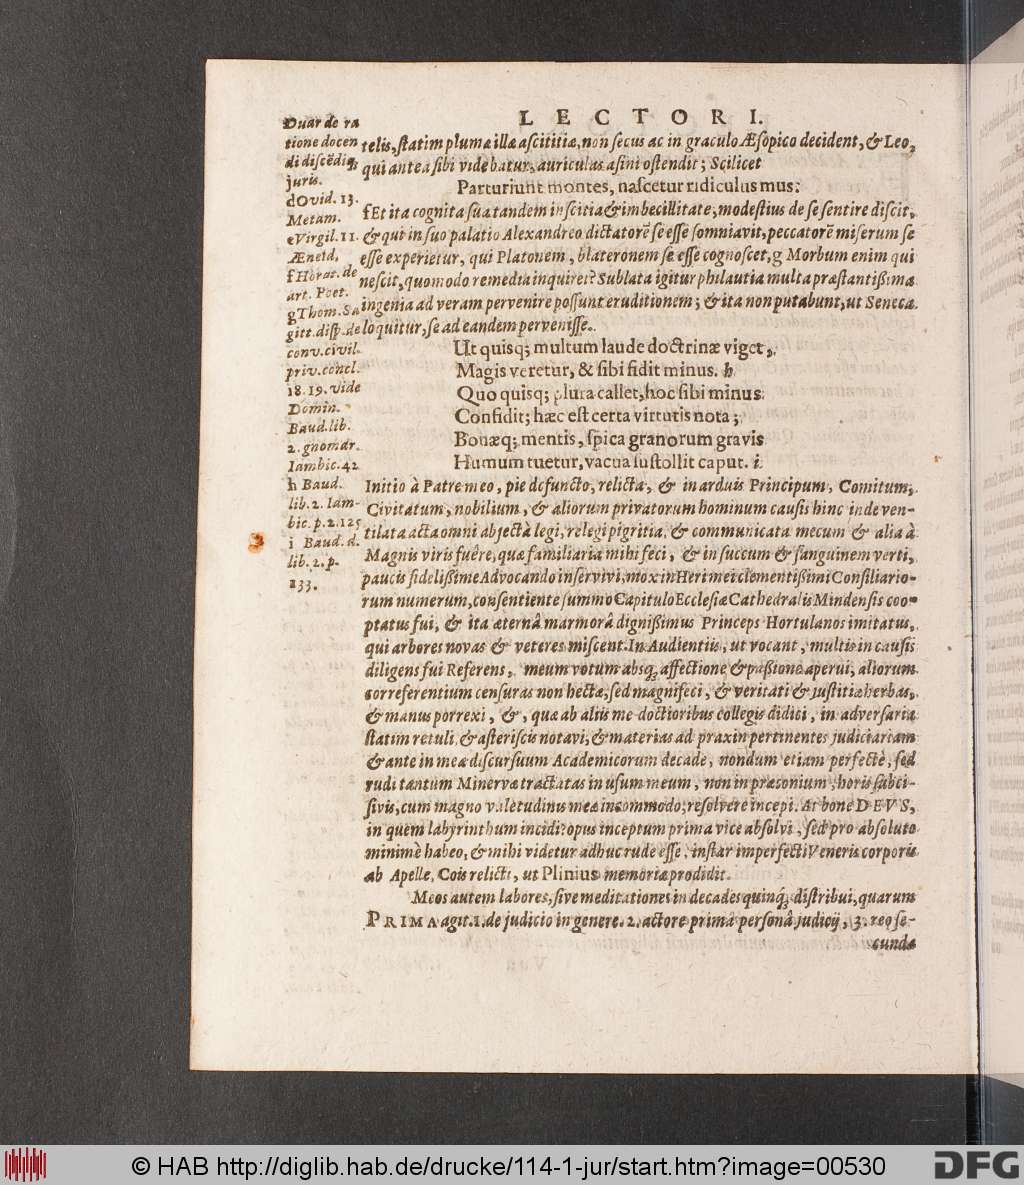 LECTORI.
Duar de ra
tione docen
di discēdiq;
juris.
d Ovid. 13.
Metam.
e Virgil. 11.
Æneid,
f Horat. de
art. Poet.
g Thom. Sa
gitt. disp. de
conv. civil.
priv. concl.
18. 19. vide
Domin.
Baud. lib.
2. gnomar.
Iambic. 42
h Baud.
lib. 2. Iam-
bic. p. 2. 125
i Baud. d.
lib. 2. p.
133.
telis, statim plumæ illæ ascititiæ, non secus ac in graculo Æsopico decident, & Leo,
qui antea sibi videbatur, auriculas asini ostendit; Scilicet
Parturiunt montes, nascetur ridiculus mus:
f Et ita cognita sua tandem inscitia & imbecillitate, modestius de se sentire discit,
& qui in suo palatio Alexandreo dictatorē se esse somniavit, peccatorē miserum se
esse experietur, qui Platonem, blateronem se esse cognoscet, g Morbum enim qui
nescit, quomodo remedia inquiret? Sublata igitur philautia multa præstantißima
ingenia ad veram pervenire possunt eruditionem; & ita non putabunt, ut Seneca
loquitur, se ad eandem pervenisse.
Ut quisq; multum laude doctrinæ viget,
Magis veretur, & sibi fidit minus. h
Quo quisq; plura callet, hoc sibi minus
Confidit; hæc est certa virtutis nota;
Bonæq; mentis, spica granorum gravis
Humum tuetur, vacua sustollit caput. i
Initio à Patre meo, pie defuncto, relicta, & in arduis Principum, Comitum,
Civitatum, nobilium, & aliorum privatorum hominum causis hinc inde ven-
tilata acta omni abjectâ legi, relegi pigritia, & communicata mecum & alia à
Magnis viris fuêre, quæ familiaria mihi feci, & in succum & sanguinem verti,
paucis fidelißime Advocando inservivi, mox in Heri mei clementißimi Consiliario-
rum numerum, consentiente summo Capitulo Ecclesiæ Cathedralis Mindensis coo-
ptatus fui, & ita æternâ marmorâ dignißimus Princeps Hortulanos imitatus,
qui arbores novas & veteres miscent. In Audientiis, ut vocant, multis in causis
diligens fui Referens, meum votum absq; affectione & paßione aperui, aliorum
correferentium censuras non hectæ, sed magnifeci, & veritati & justitiæ herbas,
& manus porrexi, &, quæ ab aliis me doctioribus collegis didici, in adversaria
statim retuli, & asteriscis notavi, & materias ad praxin pertinentes judiciariam
& ante in mea discursuum Academicorum decade, nondum etiam perfectè, sed
rudi tantùm Minerva tractatas in usum meum, non in præconium, horis subci-
sivis, cum magno valetudinis meæ incommodo, resolvere incepi. At bone DEVS,
in quem labyrinthum incidi? opus inceptum prima vice absolvi, sed pro absoluto
minimè habeo, & mihi videtur adhuc rude esse, instar imperfecti Veneris corporis
ab Apelle, Cois relicti, ut Plinius memoriæ prodidit.
Meos autem labores, sive meditationes in decades quinq; distribui, quarum
PRIMA agit. 1. de judicio in genere. 2. actore primâ personâ judicij, 3. reo se-
cunda
© HAB http://diglib.hab.de/drucke/114-1-jur/start.htm?image=00530
DFG